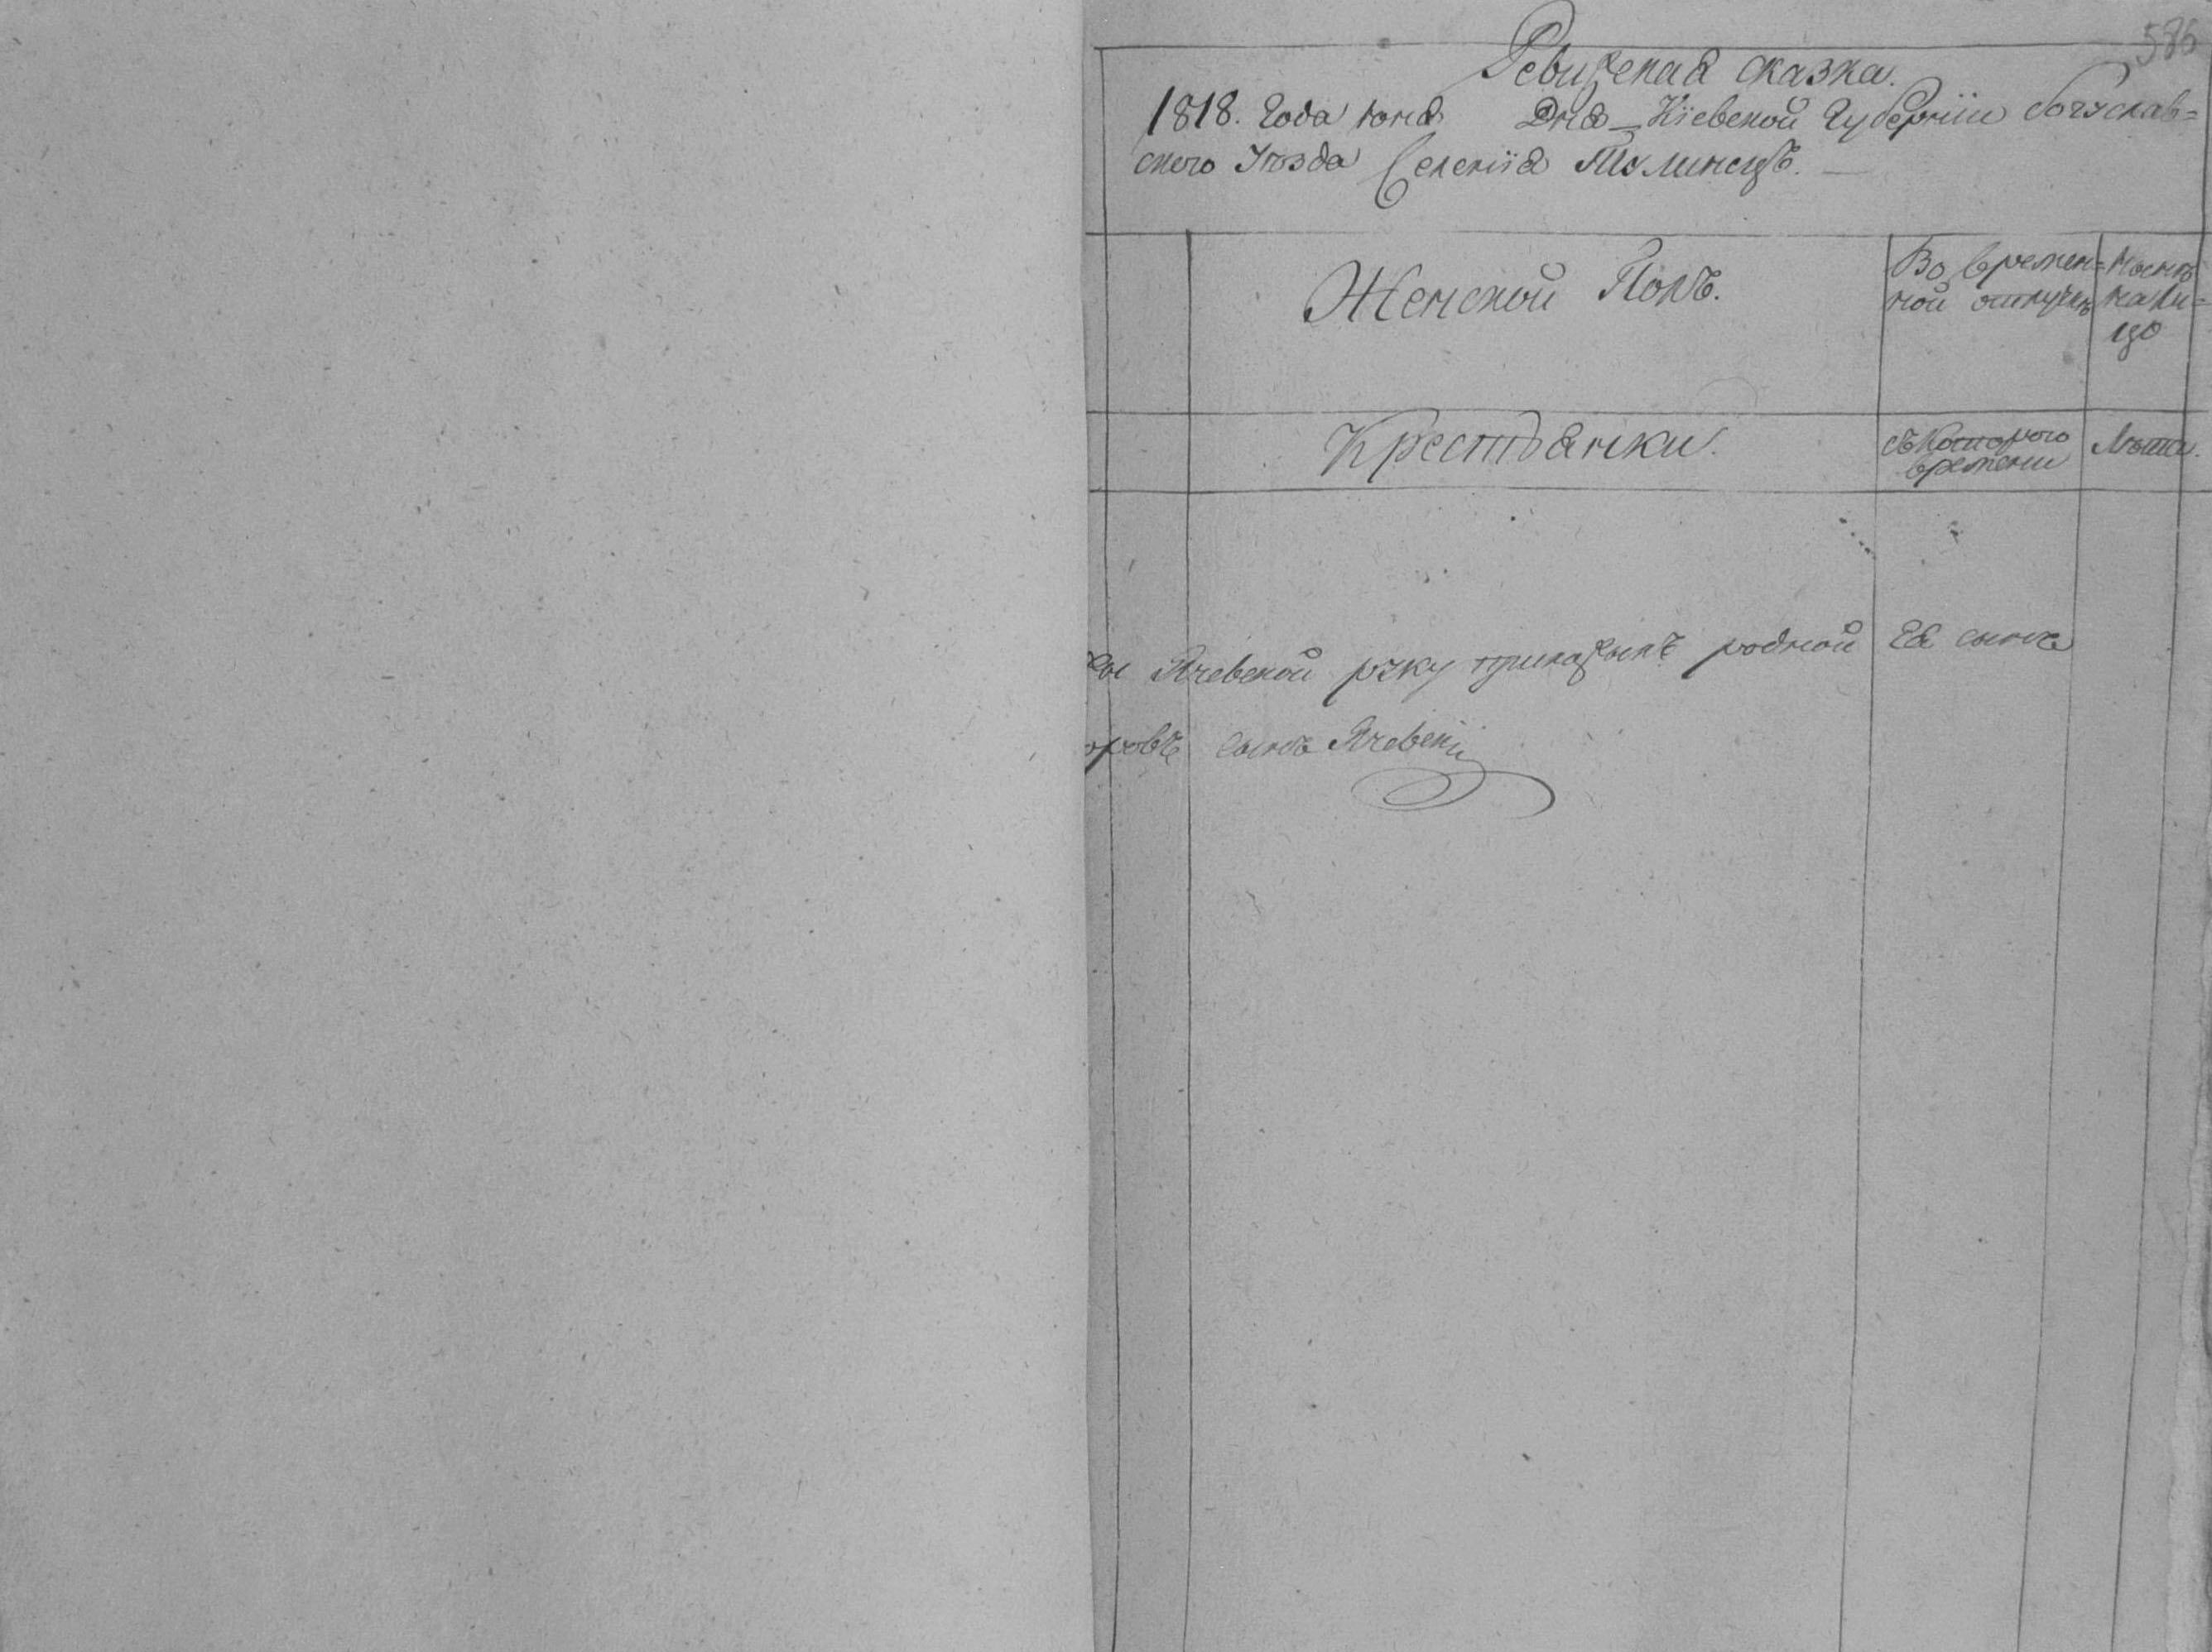 586
Ревизская сказка.
1818. Года юня Дня — Кіевской Губерніи Богуслав=
ского Уѣзда Селенія
Женской Полъ.
Во времен=
ной отлучкѣ
Нынѣ
на ли=
цо
Крестьянки.
съ Котораго
времени
Лѣта.
Ячевской руку приложилъ родной Ея сынъ
сынъ Ячевскій